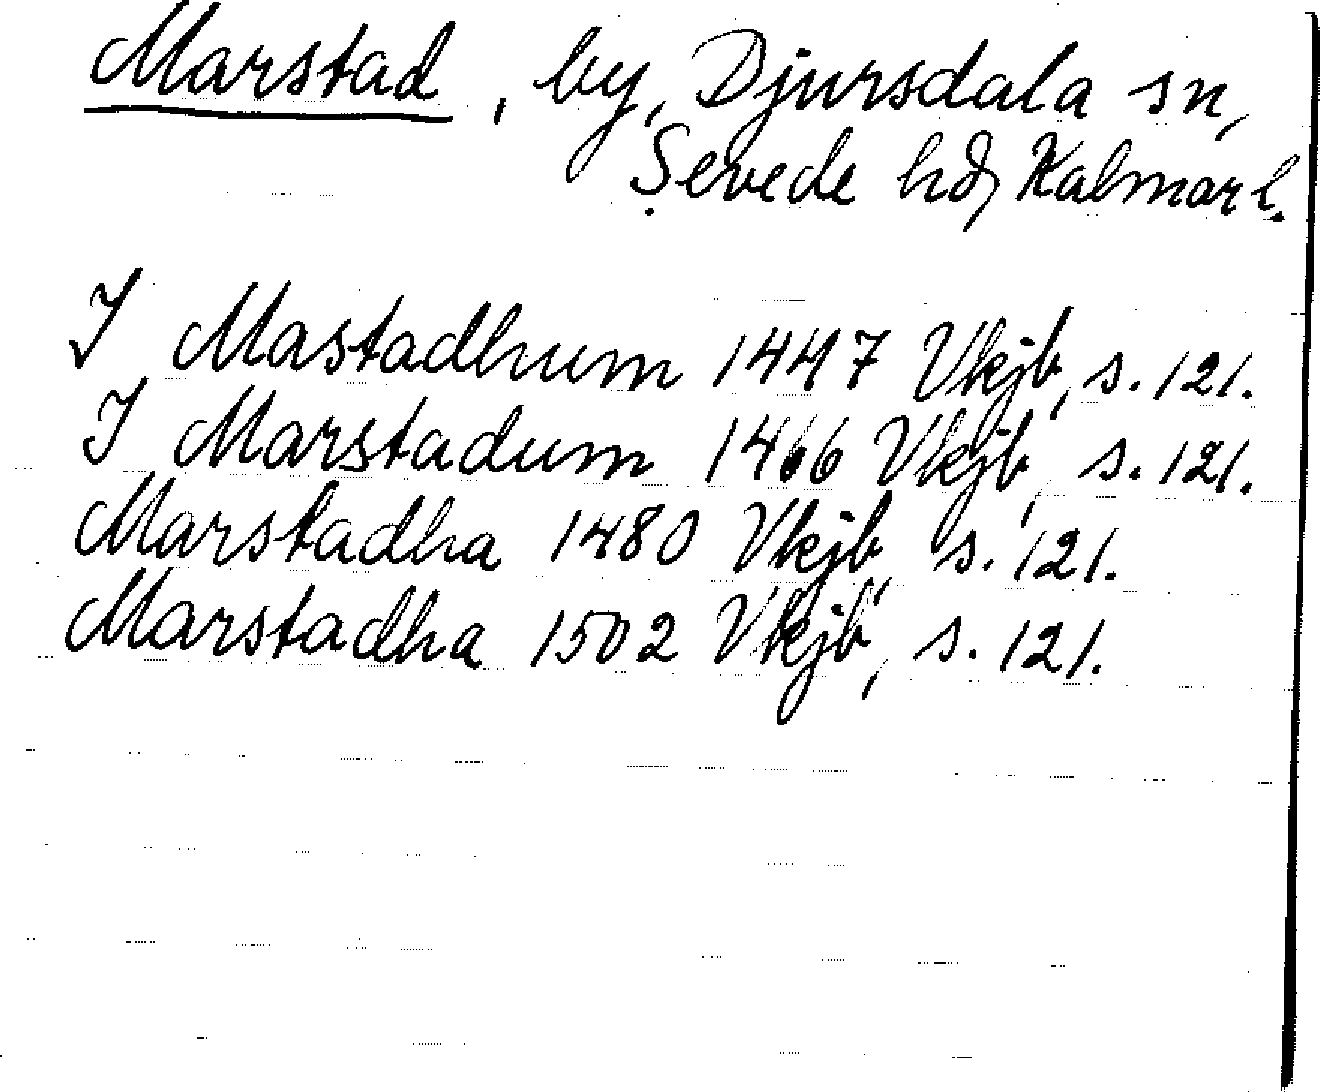 Marstad, by, Djursdala sn,
Sevede hd, Kalmar l.
I Mastadhum 1447 Vkjb, s. 121.
I Marstadum 1466 Vkjb, s. 121.
Marstadha 1480 Vkjb, s. 121.
Marstadha 1502 Vkjb, s. 121.